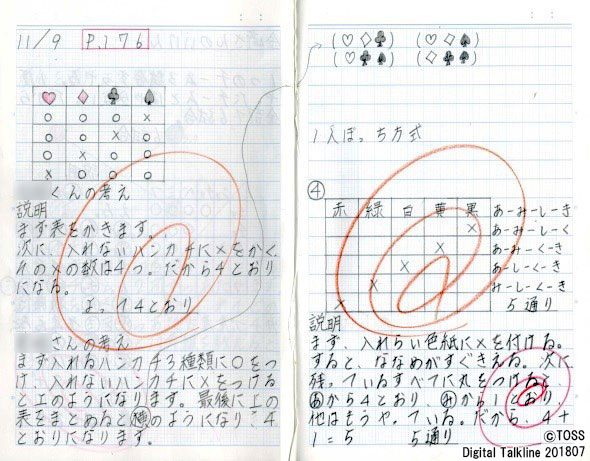 11/9 P.176
♡ ♢ ♣ ♠
○ ○ ○ ×
○ ○ × ○
○ × ○ ○
× ○ ○ ○
くんの考え
説明
まず表をかきます。
次に、入れないハンカチに×をかく。
その×の数は4つ。だから4とおり
になる。
よ、14とおり
さんの考え
まず入れるハンカチ3種類に○をつ
け、入れないハンカチに×をつける
と上のようになります。最後に上の
表をまとめると のようになり、4
とおりになります。
(♡♢♣) (♡♢♠)
(♡♣♠) (♢♣♠)
1人ぼっち方式
④
赤 緑 白 黄 黒
× あーみーしーき
× あーみーしーく
× あーみーくーき
× あーしーくーき
× みーしーくーき
5通り
説明
まず、入れない色紙に×を付ける。
すると、ななめがすぐきえる。次に
残っているすべてに丸をつけると
あから4とおり みから1とおり
他はもうやっている。だから、4+
1=5 5通り
©TOSS
Digital Talkline 201807